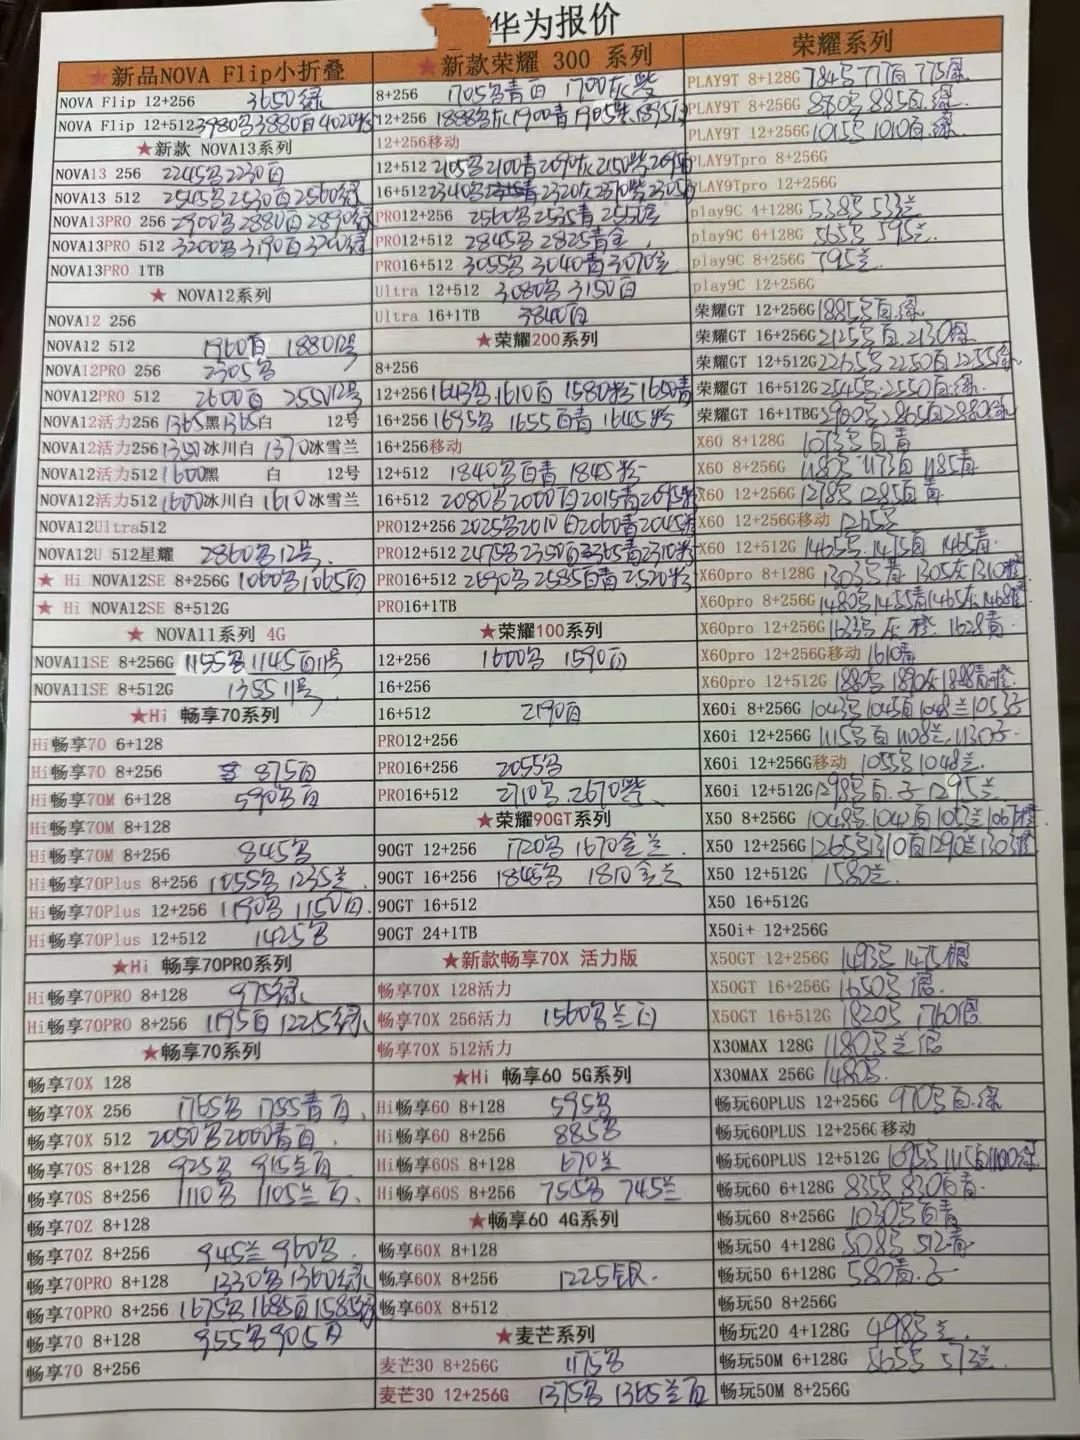 华为报价
★新品NOVA Flip小折叠
NOVA Flip 12+256 3650绿
NOVA Flip 12+512 3980名3880百4020粉
★新款 NOVA13系列
NOVA13 256 2245名2230百
NOVA13 512 2545名2530百2560绿
NOVA13PRO 256 2900名2880百2890绿
NOVA13PRO 512 3200名3190百3200绿
NOVA13PRO 1TB
★ NOVA12系列
NOVA12 256
NOVA12 512 1960百 1880 12号
NOVA12PRO 256 2305名
NOVA12PRO 512 2600百 2550 12号
NOVA12活力256 1365黑1365白 12号
NOVA12活力256 1350冰川白 1370冰雪兰
NOVA12活力512 1600黑 白 12号
NOVA12活力512 1600冰川白 1610冰雪兰
NOVA12Ultra512
NOVA12U 512星耀 2860名12号
★ Hi NOVA12SE 8+256G 1060名1065百
★ Hi NOVA12SE 8+512G
★ NOVA11系列 4G
NOVA11SE 8+256G 1155名1145百11号
NOVA11SE 8+512G 1355 11号
★Hi 畅享70系列
Hi畅享70 6+128
Hi畅享70 8+256 875百
Hi畅享70M 6+128 590名百
Hi畅享70M 8+128
Hi畅享70M 8+256 845名
Hi畅享70Plus 8+256 1055名 1235兰
Hi畅享70Plus 12+256 1190名 1150百
Hi畅享70Plus 12+512 1425名
★Hi 畅享70PRO系列
Hi畅享70PRO 8+128 975绿
Hi畅享70PRO 8+256 1195百 1225绿
★畅享70系列
畅享70X 128
畅享70X 256 1765名 1755青百
畅享70X 512 2050名2000青百
畅享70S 8+128 925名 915兰百
畅享70S 8+256 1110名 1105兰百
畅享70Z 8+128
畅享70Z 8+256 945兰 960名
畅享70PRO 8+128 1230名1360绿
畅享70PRO 8+256 1675名1685百1585绿
畅享70 8+128 955名905百
畅享70 8+256
★新款荣耀 300 系列
8+256 1705名青百 1700灰紫
12+256 1888名灰1900青1905紫
12+256移动
12+512 2105名2100青2090灰2150紫
16+512 2340名 2320灰2310紫
PRO12+256 2560名2535青2550金
PRO12+512 2845名2825青金
PRO16+512 3055名3040青3070金
Ultra 12+512 3080名3150百
Ultra 16+1TB 3840百
★荣耀200系列
8+256
12+256 1643名1610百 1580粉1650青
16+256 1695名 1655百青1645粉
16+256移动
12+512 1840名百青 1845粉
16+512 2080名2000百2015青2095粉
PRO12+256 2025名2010百2060青2045粉
PRO12+512 2475名2350百2365青2310粉
PRO16+512 2690名2585百青2520粉
PRO16+1TB
★荣耀100系列
12+256 1600名 1590百
16+256
16+512 2190百
PRO12+256
PRO16+256 2055名
PRO16+512 2710名 2670紫
★荣耀90GT系列
90GT 12+256 1720名 1670金兰
90GT 16+256 1845名 1810金兰
90GT 16+512
90GT 24+1TB
★新款畅享70X 活力版
畅享70X 128活力
畅享70X 256活力 1560名兰百
畅享70X 512活力
★Hi 畅享60 5G系列
Hi畅享60 8+128 595名
Hi畅享60 8+256 885名
Hi畅享60S 8+128 670兰
Hi畅享60S 8+256 755名 745兰
★畅享60 4G系列
畅享60X 8+128
畅享60X 8+256 1225银
畅享60X 8+512
★麦芒系列
麦芒30 8+256G 1175名
麦芒30 12+256G 1375名 1365兰百
荣耀系列
PLAY9T 8+128G 784名777百775绿
PLAY9T 8+256G 880名885百绿
PLAY9T 12+256G 1015名1010百绿
PLAY9Tpro 8+256G
PLAY9Tpro 12+256G
play9C 4+128G 538名533兰
play9C 6+128G 565名 595兰
play9C 8+256G 795兰
play9C 12+256G
荣耀GT 12+256G 1885名百绿
荣耀GT 16+256G 2125名百2130绿
荣耀GT 12+512G 2265名2250百2255绿
荣耀GT 16+512G 2545名2550百绿
荣耀GT 16+1TBG 2900名2865百2880绿
X60 8+128G 1073名百青
X60 8+256G 1180名1173百1185青
X60 12+256G 1278名1285百青
X60 12+256G移动 1265名
X60 12+512G 1465名1475百1465青
X60pro 8+128G 1303名青1305灰1310橙
X60pro 8+256G 1480名1455青1465灰1468橙
X60pro 12+256G 1633名灰橙 1628青
X60pro 12+256G移动 1610青
X60pro 12+512G 1880名1890灰1888青橙
X60i 8+256G 1043名1045百1048兰1053子
X60i 12+256G 1115名百1108兰1130子
X60i 12+256G移动 1055名1048兰
X60i 12+512G 1298名百子1295兰
X50 8+256G 1048名1040百1053兰
X50 12+256G 1265名1310百1290兰1303橙
X50 12+512G 1580兰
X50 16+512G
X50i+ 12+256G
X50GT 12+256G 1493名1475银
X50GT 16+256G 1650名银
X50GT 16+512G 1820名 1760银
X30MAX 128G 1180名兰银
X30MAX 256G 1480名
畅玩60PLUS 12+256G 970名百绿
畅玩60PLUS 12+256G移动
畅玩60PLUS 12+512G 1095名1115百1100绿
畅玩60 6+128G 835名830百青
畅玩60 8+256G 1030名百青
畅玩50 4+128G 508名 512青
畅玩50 6+128G 580青子
畅玩50 8+256G
畅玩20 4+128G 498名兰
畅玩50M 6+128G 565名 573兰
畅玩50M 8+256G